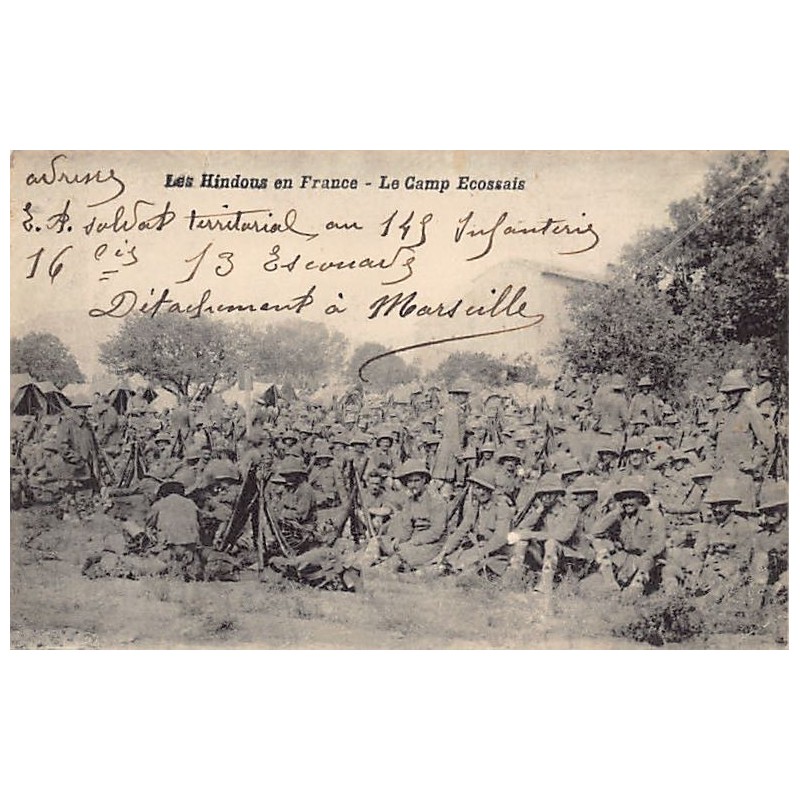 adresse
Les Hindous en France - Le Camp Ecossais
E. A. soldat territorial au 145 Infanterie
16 Cie 13 Escouade
Détachement à Marseille